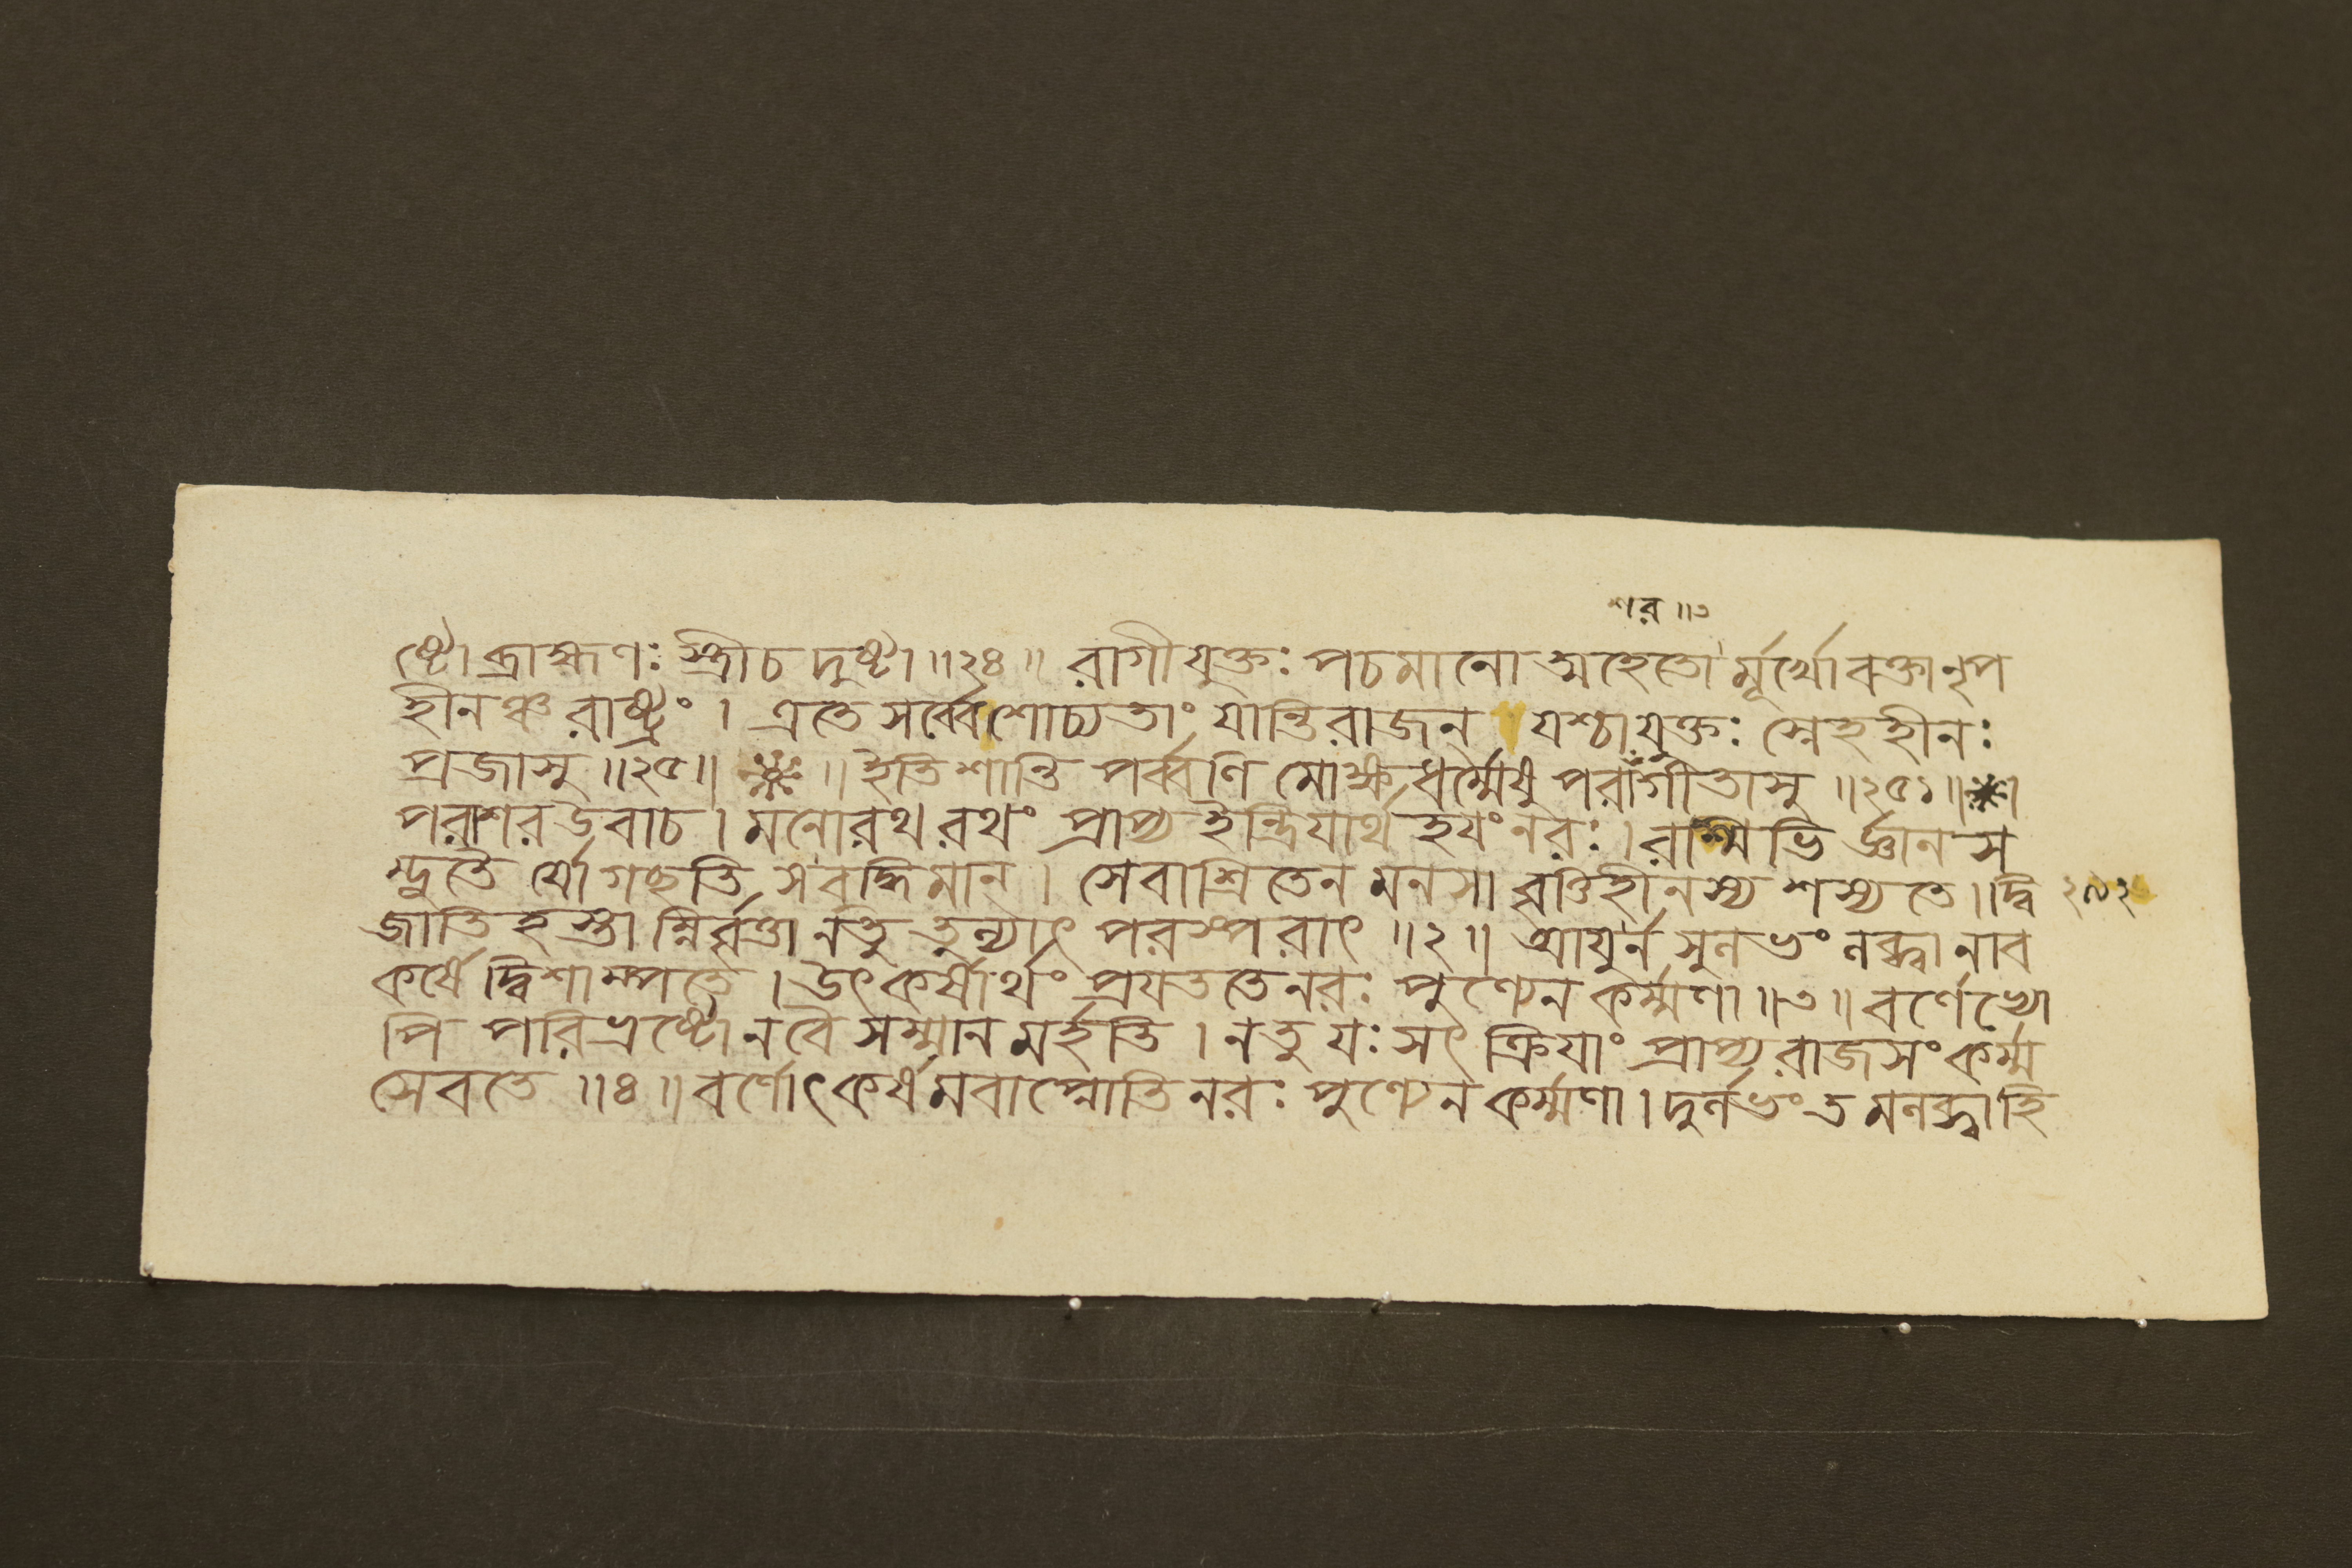 শর ॥ ৩
ষ্টো ব্রাহ্মণঃ স্ত্রীচ দুষ্টা ॥ ২৪ ॥ রাগীযুক্তঃ পচমানো ত্মহেতো র্মূর্খো বক্তা নৃপ
হীনঞ্চ রাষ্ট্রং । এতে সর্ব্বে শোচ্যতাং যান্তি রাজন্ যশ্চাযুক্তঃ স্নেহহীনঃ
প্রজাসু ॥ ২৫ ॥ ※ ॥ ইতি শান্তি পর্ব্বণি মোক্ষধর্ম্মেষু পরাগীতাসু ॥ ২৫১ ॥ ※ ॥
পরাশর উবাচ । মনোরথ রথং প্রাপ্য ইন্দ্রিযার্থ হযং নরঃ । রশ্মিভি র্জ্ঞান স
ম্ভূতৈ র্যো গচ্ছতি স বুদ্ধিমান্ । সেবাশ্রিতেন মনসা বৃত্তিহীনস্য শস্যতে । দ্বি
২৯২
জাতি হস্তা ন্নির্ব্বৃত্তা নতু তুল্যাৎ পরস্পরাৎ ॥ ২ ॥ আযুর্ন সুলভং লব্ধ্বা নাব
কর্ষে দ্বিশাম্পতে । উৎকর্ষার্থং প্রযততে নরঃ পুণ্যেন কর্ম্মণা ॥ ৩ ॥ বর্ণেভ্যো
পি পরিভ্রষ্টো নবৈ সম্মান মর্হতি । নতু যঃ সৎ ক্রিযাং প্রাপ্য রাজসং কর্ম্ম
সেবতে ॥ ৪ ॥ বর্ণোৎকর্ষ মবাপ্নোতি নরঃ পুণ্যেন কর্ম্মণা । দুর্লভং ত মলব্ধ্বা হি